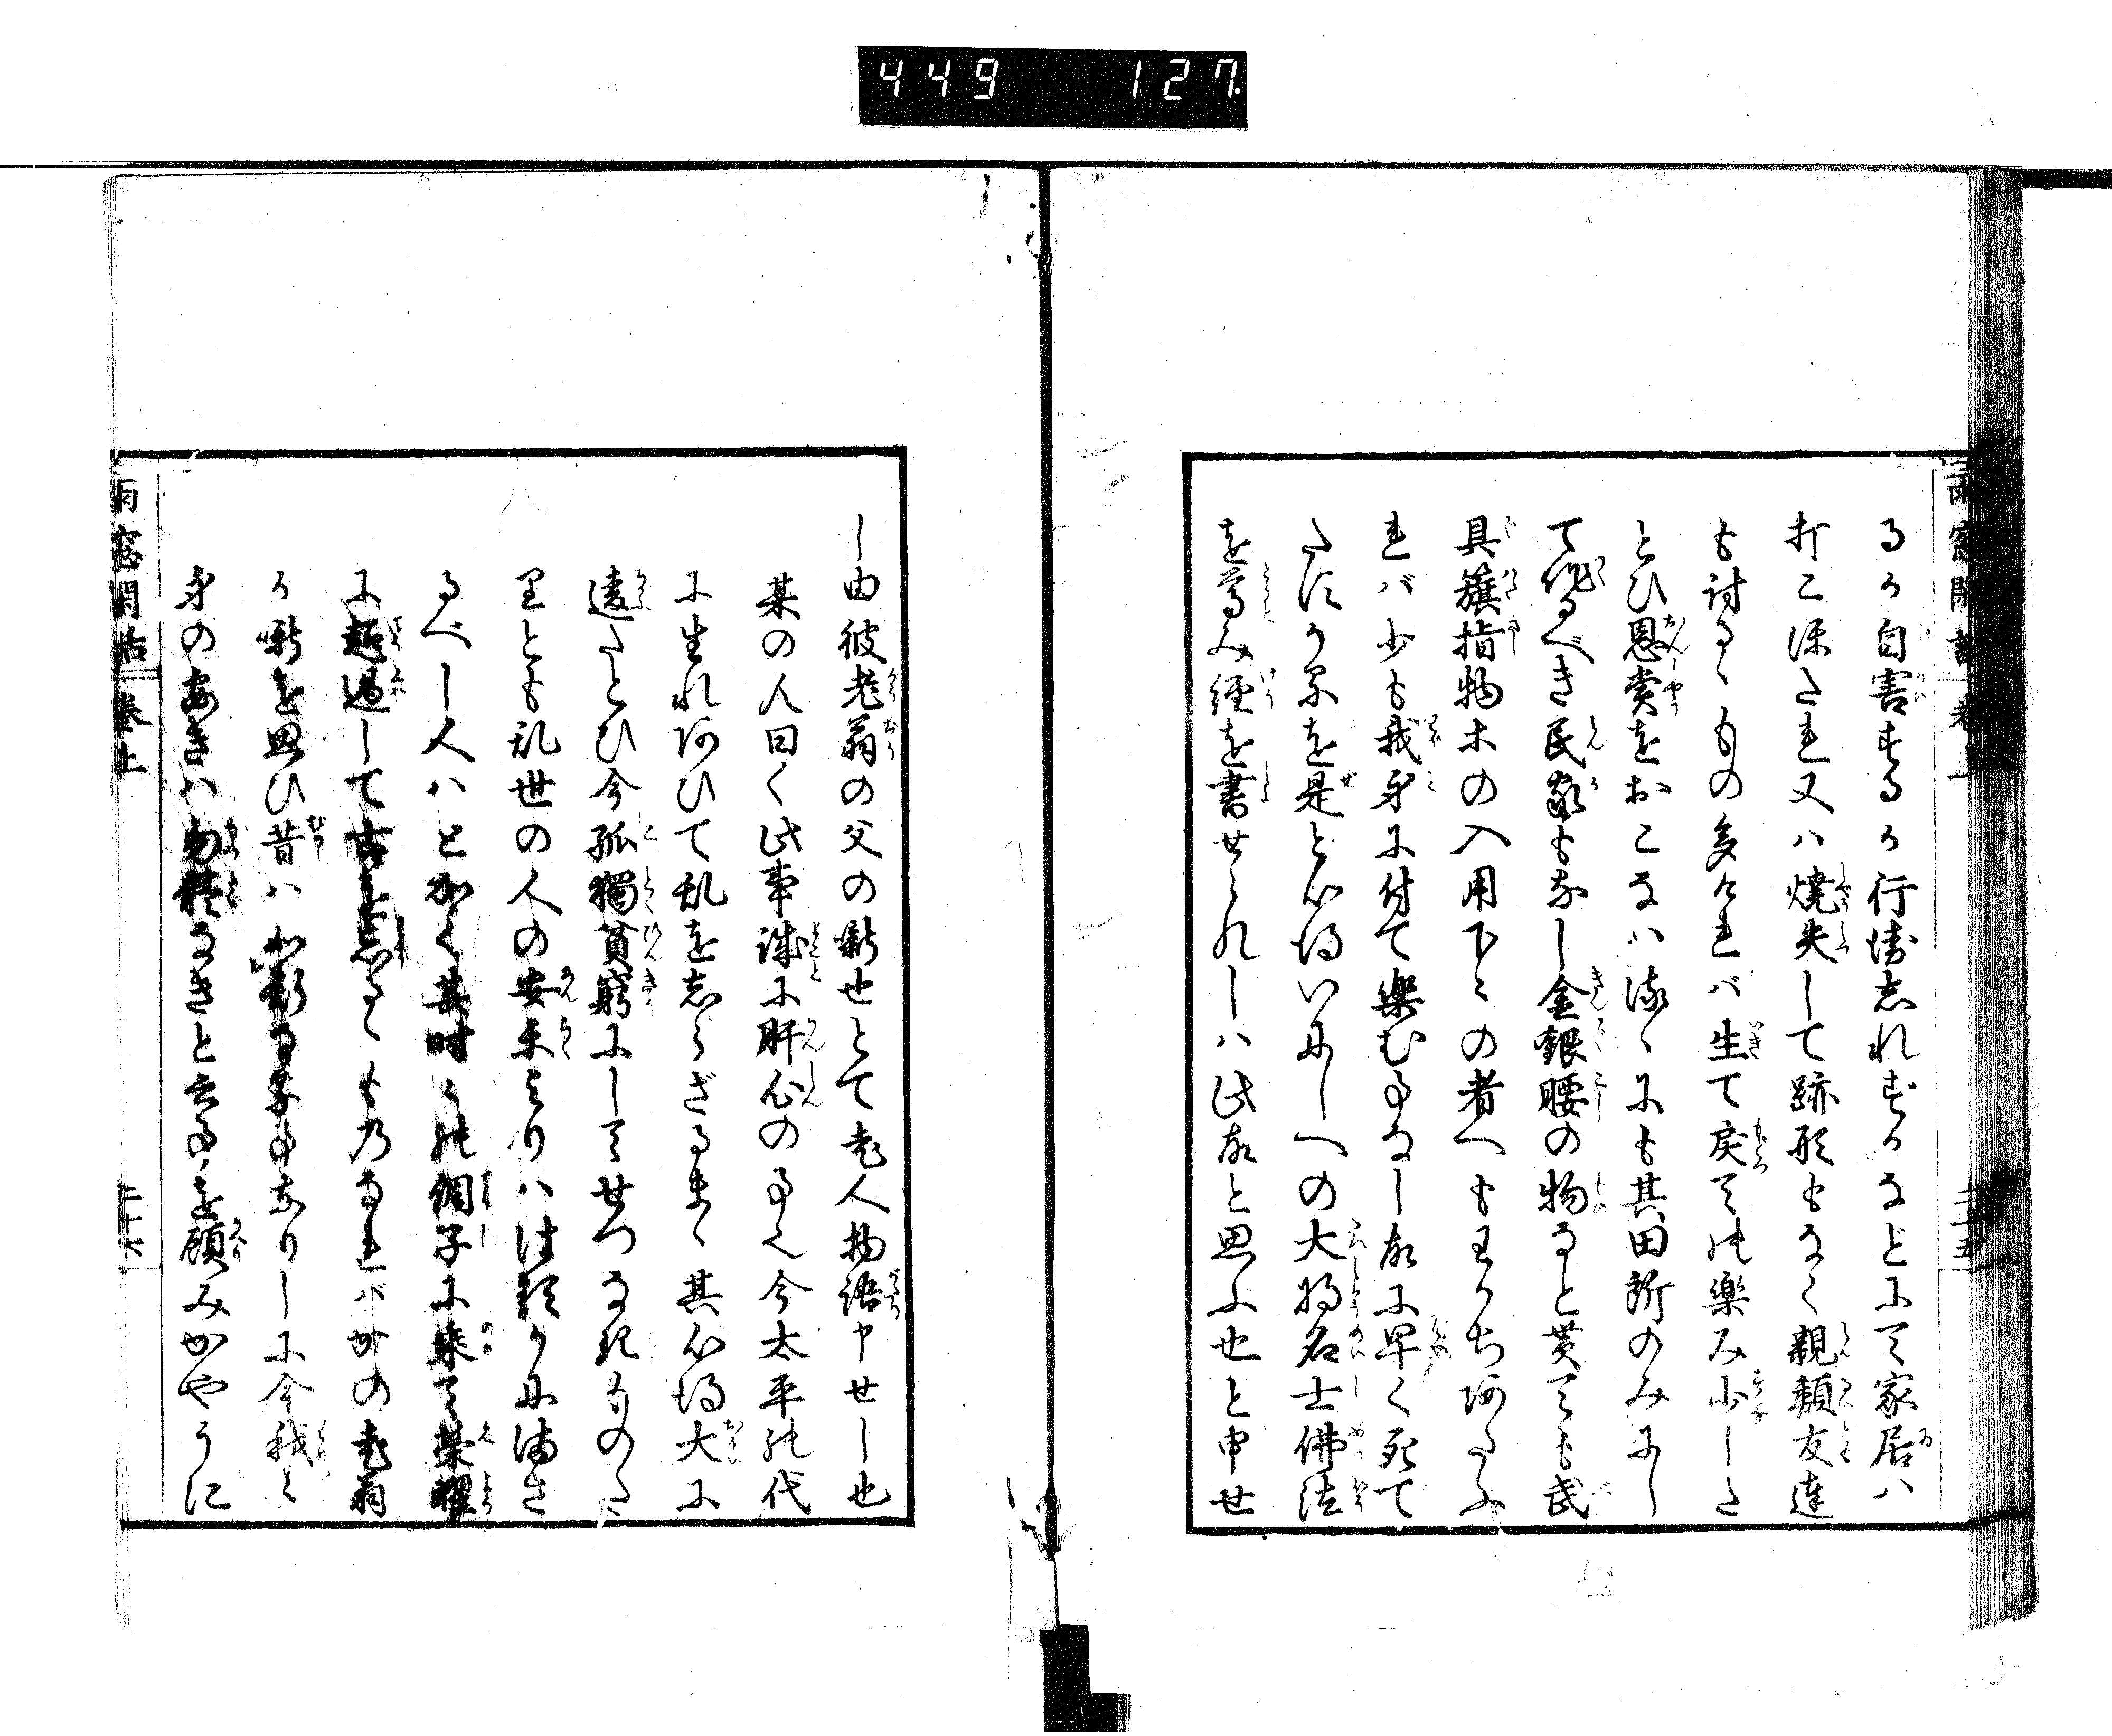 449 127
雨窓閑話 巻上 二十五
るか自害するか行衛志れずかなどにて家居ハ
打こほたれ又ハ焼失して跡形もなく親類友達
も討るゝもの多けれバ生て戻ての楽み少した
とひ恩賞をおこなハるゝにも其田所のみにし
て作るべき民家もなし金銀腰の物なと貰ても武
具籏指物木の入用下々の者へもわかちあたふ
れバ少も我身に付て楽む事なし故に早く死て
たにか家を是と心得いにしへの大将名士佛法
を尊み経を書せられしハ此故と思ふ也と申せ
し由彼老翁の父の噺也とて老人物語申せし也
某の人曰く此事誠に肝心の事也今太平の代
に生れあひて乱を志らざるまゝ其心得大に
違たとひ今孤獨貧窮にしてせつなきものた
りとも乱世の人の安楽よりハ住
るべし人ハとかく其時々の調子に乗て栄耀
に超過して古を志るゝものなれバかの老翁
か噺を思ひ昔ハ如斯る事なりしに今我々
身のあきハ勿躰なきと云事を顧みかやうに
雨窓閑話 巻上 二十六